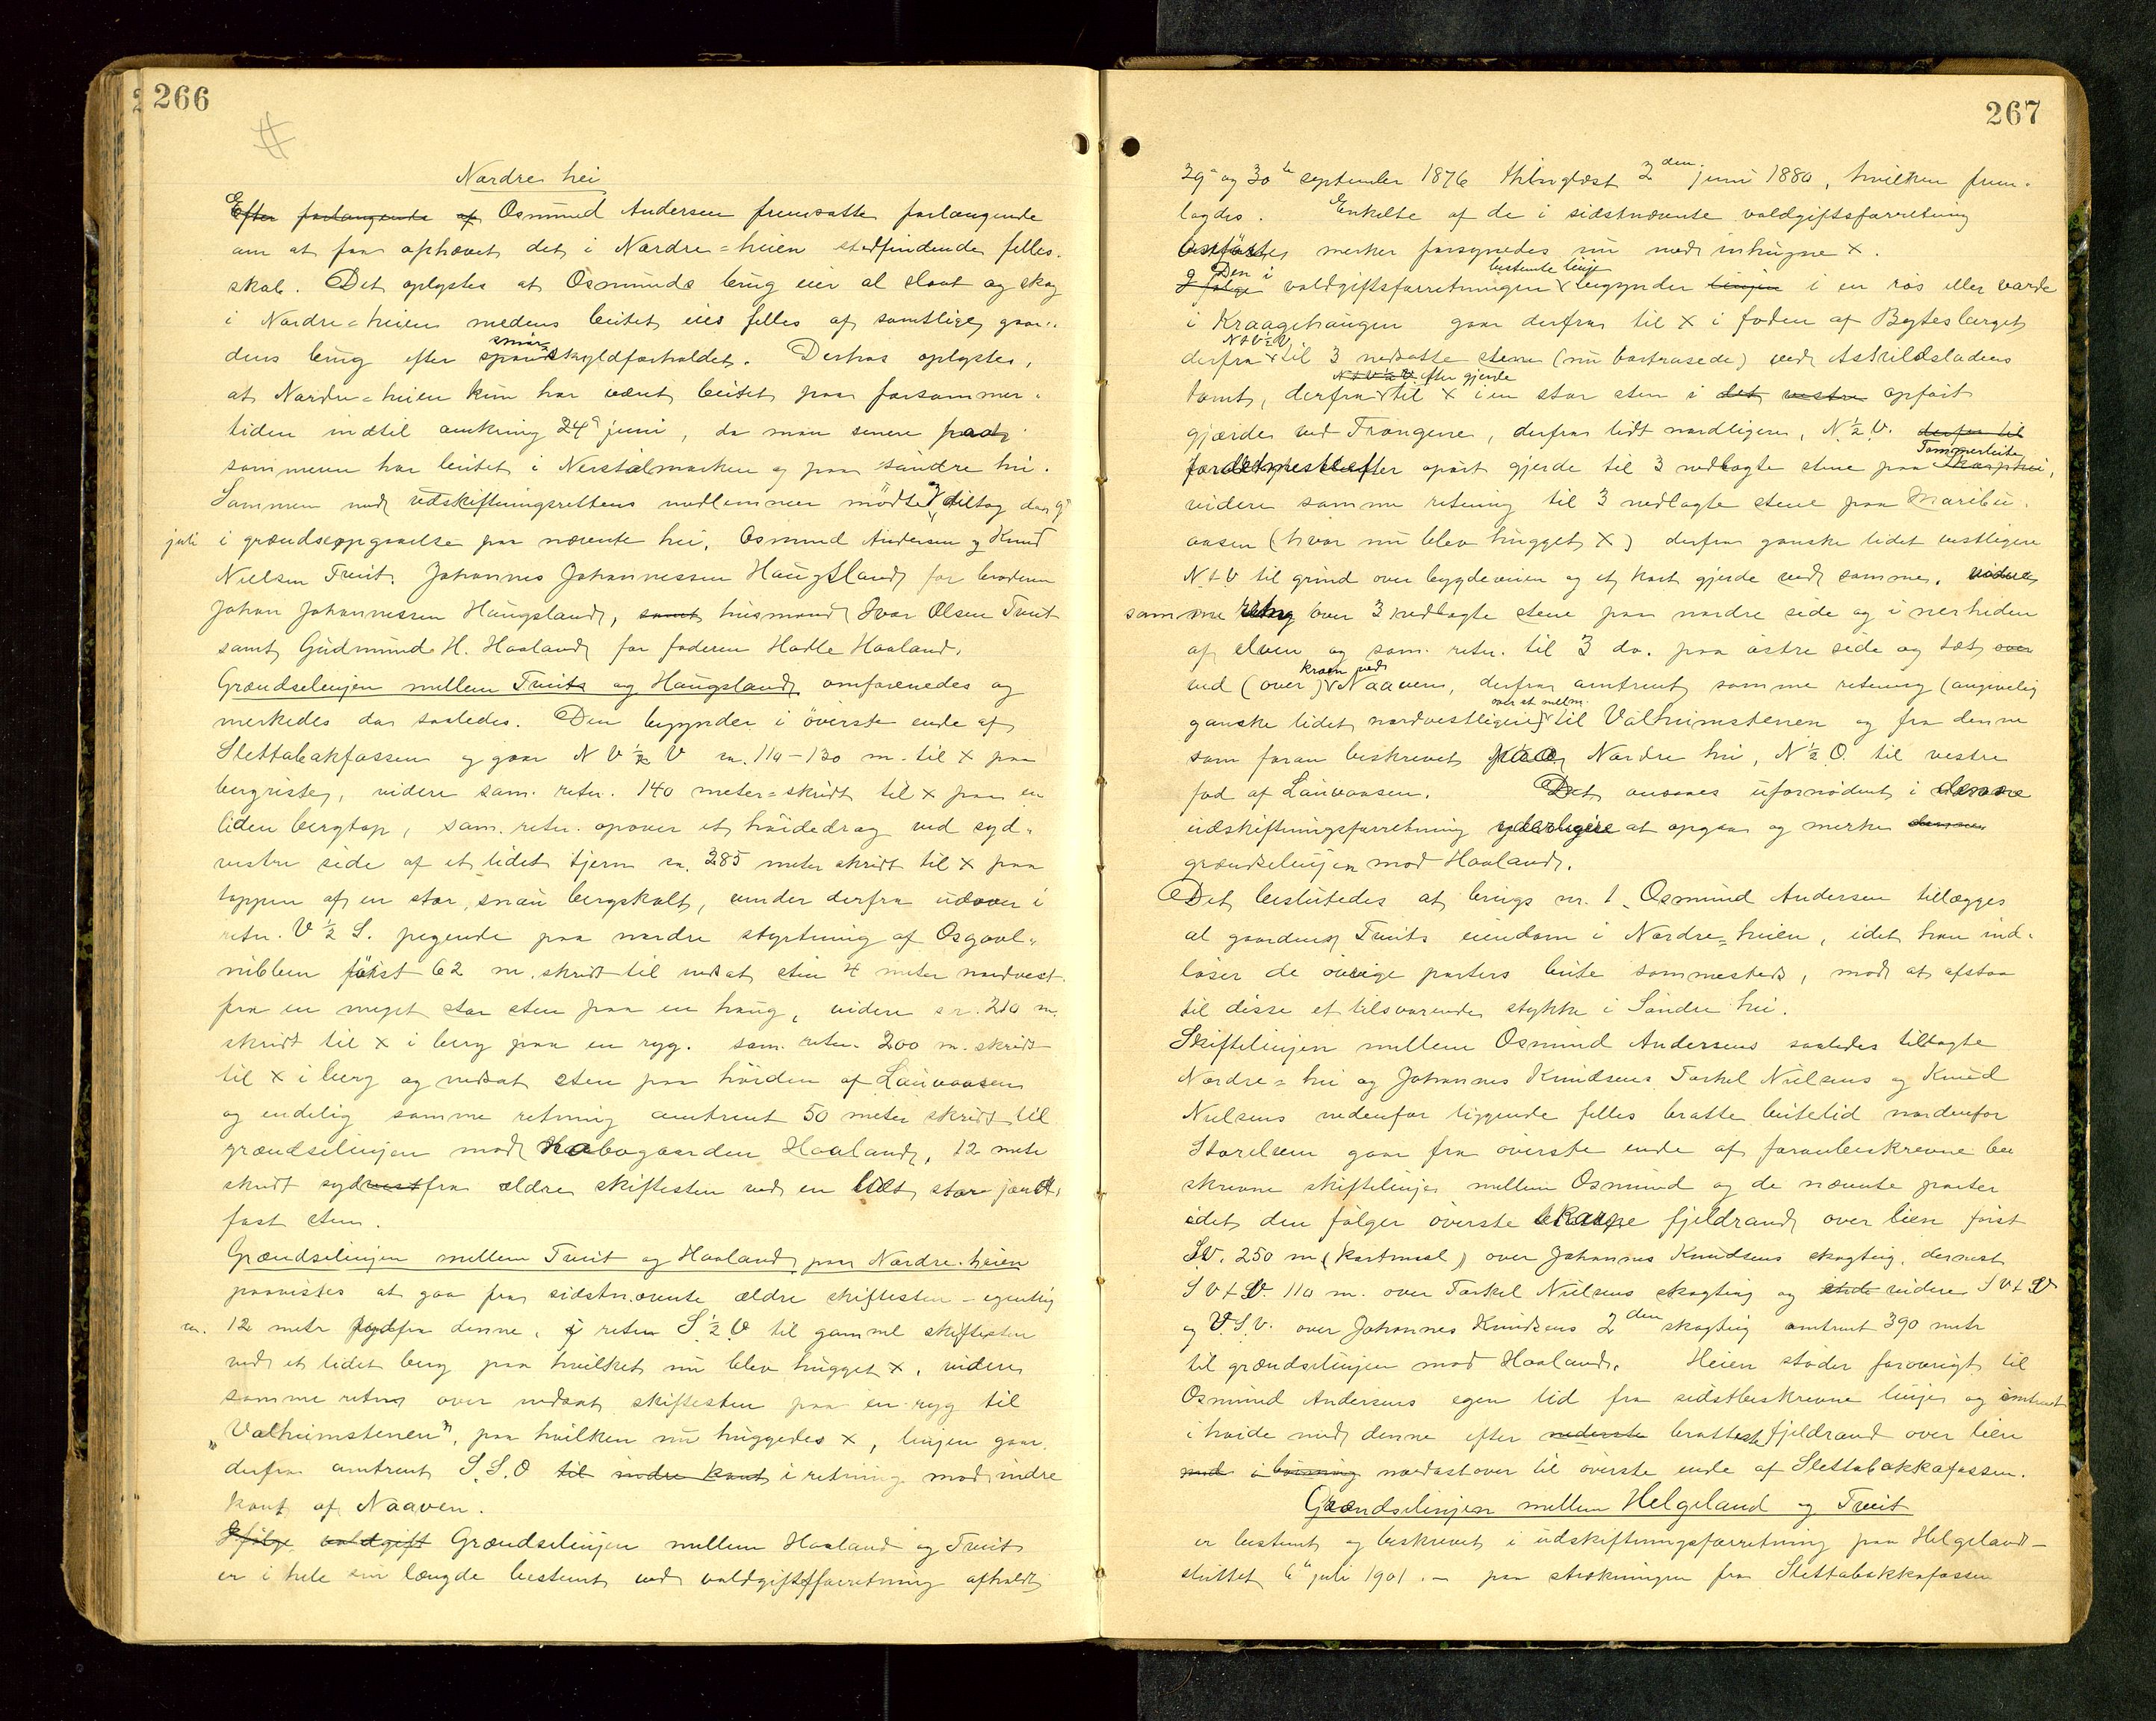 266
Nordre hei
Efter forlangende af Osmund Andersen fremsatte forlangende
om at faa ophævet det i Nordre=heien stedfindende felles.
skab. Det oplystes at Osmunds brug eier al slaat og skog
i Nordre=heien medens beitet eies felles af samtlige gaar-
dens brug efter smør skyldforholdet. Derhos oplystes,
at Nordre=heien kun har været beitet paa forsommer-
tiden indtil omkring 24de juni, da man senere paa
sommeren har beitet i Nerstølmarken og paa søndre hei.
Sammen med udskiftningsrettens medlemmer mødte deltog den 9de
juli i grændseopgaaelse paa nævnte hei, Osmund Andersen og Knud
Nielsen Tveit, Johannes Johannessen Haugsland for broderen
Johan Johannessen Haugsland, samt husmand Ivar Olsen Tveit
samt Gudmund H. Haaland for faderen Hadle Haaland.
Grændselinjen mellem Tveit og Haugsland omforenedes og
merkedes da saaledes. Den begynder i överste ende af
Slettabakfossen og gaar N V ½ V ca. 110-130 m. til x paa
bergriste, videre sam. retn. 140 meter=skridt til x paa en
liden bergtop, sam. retn. opover et høidedrag ved syd-
vestre side af et lidet tjern ca. 285 meter skridt til x paa
toppen af en stor, snau bergskolt, vender derfra udover i
retn. V ½ S. pegende paa nordre styrtning af Osgaol-
nibben først 62 m. skridt til nedsat sten 4 meter nordvest
fra en meget stor sten paa en haug, videre ca. 210 m.
skridt til x i berg paa en ryg. sam. retn. 200 m. skridt
til x i berg og nedsat sten paa høiden af Lauvaasen
og endelig samme retning omtrent 50 meter skridt til
grændselinjen mod nabogaarden Haaland, 12 meter
skridt sydvest fra ældre skiftesten ved en lidt, stor jord-
fast sten.
Grændselinjen mellem Tveit og Haaland paa Nordre-heien
paavistes at gaa fra sidstnævnte ældre skiftesten - egentlig
ca. 12 meter syd fra denne, i retn S ½ V til gammel skiftesten
ved et lidet berg paa hvilket nu blev hugget x, videre
samme retng over nedsat skiftesten paa en ryg til
„Valheimstenen", paa hvilken nu huggedes x, linjen gaar
derfra omtrent S.S.O til indre kant i retning mod indre
kant af Naaven.
Ifølge voldgift Grændselinjen mellem Haaland og Tveit
er i hele sin længde bestemt ved voldgiftsforretning afholdt
267
29de og 30te september 1876 thinglæst 2den juni 1880, hvilken frem-
lagdes. Enkelte af de i sidstnævnte voldgiftsforretning
merker forsynedes nu med inhugne x.
Den i
bestemte linje
Ifølge voldgiftsforretningen begynder linjen i en rös eller varde
i Kraagehaugen gaar derfra til x i foden af Bytesberget
N t V ½ V
derfra til 3 nedsatte stene (nu bortrasede) ved Askildsladens
N t V ½ V efter gjerde
tomt, derfra til x i en stor sten i det vestre opført
gjærde ved Trongene, derfra lidt nordligere, N ½ V. derfor til
Tommerleite
efter opført gjerde til 3 nedlagte stene paa Skarphei,
videre samme retning til 3 nedlagte stene paa Maribu-
aasen (hvor nu blev hugget x) derfra ganske lidet vestligere
N t V til grind over bygdeveien og et kort gjerde ved samme, videre
samme retng over 3 nedlagte stene paa nordre side og i nerheden
af elven og sam. retn. til 3 do. paa östre side og tæt over
kraen ved
ved (over) Naaven, derfra omtrent samme retning (angivelig
ganske lidet nordvestligere) til Valheimstenen og fra denne
som foran beskrevet paa Nordre hei, N ½ O. til vestre
fod af Lauvaasen. Det ansaaes ufornødent i denne
udskiftningsforretning yderligere at opgaa og merke denne
grændselinjen mod Haaland.
Det besluttedes at brugs nr. 1, Osmund Andersen tillægges
al gaardens Tveits eiendom i Nordre=heien, idet han ind-
løser de øvrige parters beite sammesteds, mod at afstaa
til disse et tilsvarende stykke i Søndre hei.
Skiftelinjen mellem Osmund Andersens saaledes tillagte
Nordre=hei og Johannes Knudsens Torkel Nielsens og Knud
Nielsens nedenfor liggende felles bratte beitelid nordenfor
Storelven gaar fra överste ende af foranbeskrevne be
skrevne skiftelinje mellem Osmund og de nævnte parter
idet den følger överste skarpe fjeldrand over lien først
S.V. 250 m (kartmaal) over Johannes Knudsens skogteig, dernæst
S V t V. 110 m. over Torkel Nielsens skogteig og videre S V t V
og V.S.V. over Johannes Knudsens 2den skogteig omtrent 390 meter
til grændselinjen mod Haaland. Heien støder forøvrigt til
Osmund Andersens egen lid fra sidstbeskrevne linje og omtrent
i høide med denne efter nederste bratteste fjeldrand over lien
ned i nordostover til överste ende af Slettabakkafossen.
Grændselinjen mellem Helgeland og Tveit
er bestemt og beskrevet i udskiftningsforretning paa Helgeland -
sluttet 6te juli 1901. - paa strækningen fra Slettabakkafossen